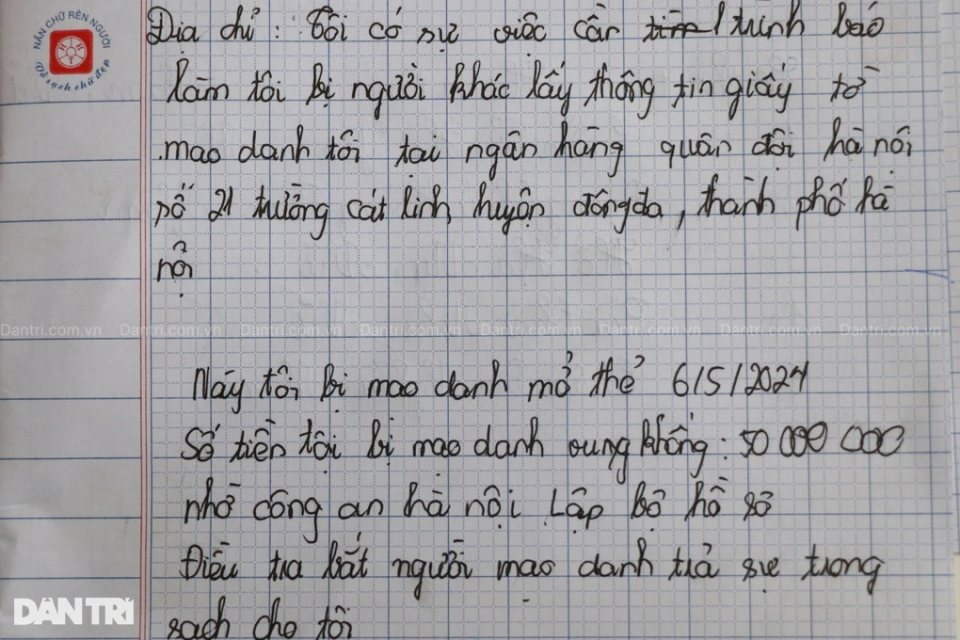 NẮN CHỮ RÈN NGƯỜI
Vở sạch chữ đẹp
Địa chỉ : Tôi có sự việc cần trình báo
làm tôi bị người khác lấy thông tin giấy tờ
mao danh tôi tại ngân hàng quân đội hà nôi
số 21 trường cát linh huyện đôngda, thành phố hà
nội
Dantri.com.vn Dantri.com.vn Dantri.com.vn Dantri.com.vn Dantri.com.vn Dantri.com.vn Dantri.com.vn Dantri.com.vn
Nay tôi bị mao danh mở thẻ 6/5/2024
Số tiền tôi bị mao danh vung khống : 50 000 000
nhờ công an hà nội Lập bộ hồ sơ
Điều tra bắt người mao danh trả sự trong
sach cho tôi
DÂN TRÍ